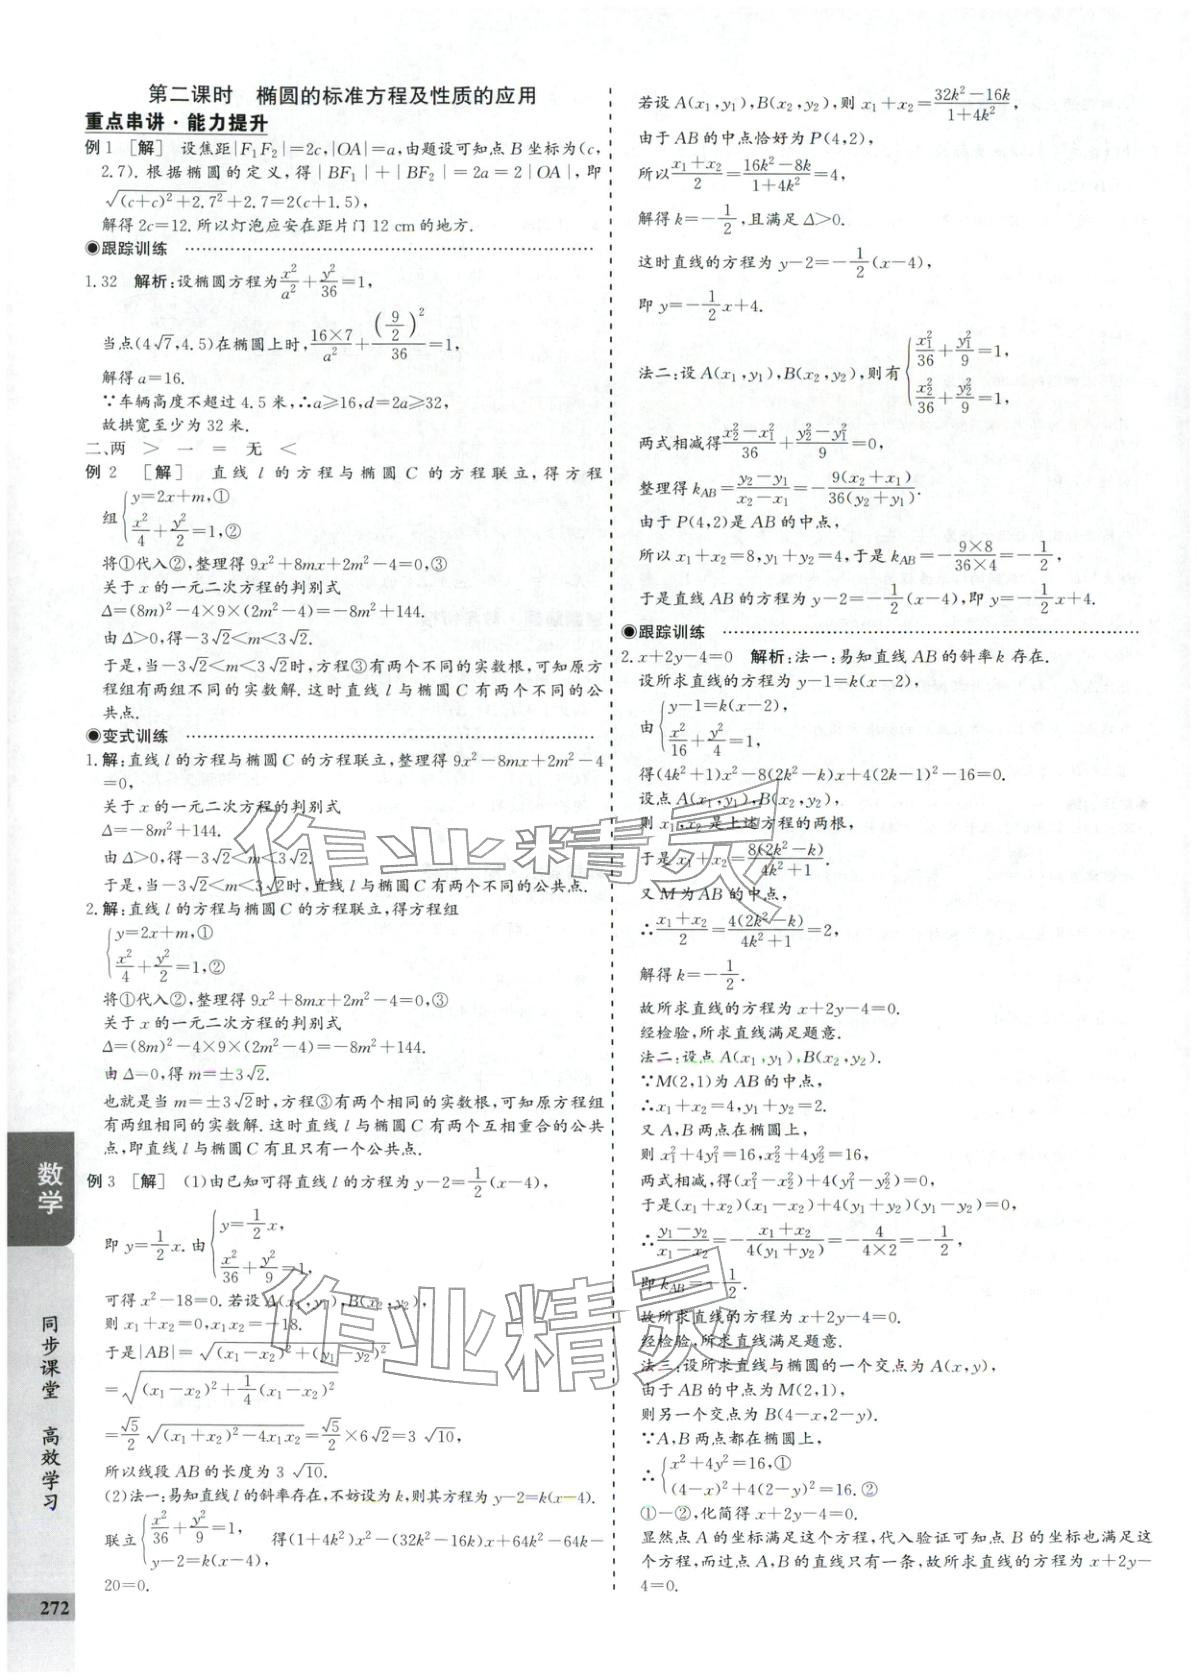 第二课时　椭圆的标准方程及性质的应用
重点串讲·能力提升
例1 [解] 设焦距|F₁F₂|=2c,|OA|=a,由题设可知点B坐标为(c,
2.7).根据椭圆的定义,得|BF₁|+|BF₂|=2a=2|OA|,即
√((c+c)²+2.7²)+2.7=2(c+1.5),
解得2c=12.所以灯泡应安在距片门12 cm的地方.
◉跟踪训练
1.32 解析:设椭圆方程为x²/a²+y²/36=1,
当点(4√7,4.5)在椭圆上时,16×7/a²+(9/2)²/36=1,
解得a=16.
∵车辆高度不超过4.5米,∴a≥16,d=2a≥32,
故拱宽至少为32米.
二、两 > 一 = 无 <
例2 [解] 直线l的方程与椭圆C的方程联立,得方程
组{y=2x+m,① x²/4+y²/2=1,②
将①代入②,整理得9x²+8mx+2m²-4=0,③
关于x的一元二次方程的判别式
Δ=(8m)²-4×9×(2m²-4)=-8m²+144.
由Δ>0,得-3√2<m<3√2.
于是,当-3√2<m<3√2时,方程③有两个不同的实数根,可知原方
程组有两组不同的实数解.这时直线l与椭圆C有两个不同的公
共点.
◉变式训练
1.解:直线l的方程与椭圆C的方程联立,整理得9x²-8mx+2m²-4
=0,
关于x的一元二次方程的判别式
Δ=-8m²+144.
由Δ>0,得-3√2<m<3√2.
于是,当-3√2<m<3√2时,直线l与椭圆C有两个不同的公共点.
2.解:直线l的方程与椭圆C的方程联立,得方程组
{y=2x+m,① x²/4+y²/2=1,②
将①代入②,整理得9x²+8mx+2m²-4=0,③
关于x的一元二次方程的判别式
Δ=(8m)²-4×9×(2m²-4)=-8m²+144.
由Δ=0,得m=±3√2.
也就是当m=±3√2时,方程③有两个相同的实数根,可知原方程组
有两组相同的实数解.这时直线l与椭圆C有两个互相重合的公共
点,即直线l与椭圆C有且只有一个公共点.
例3 [解] (1)由已知可得直线l的方程为y-2=1/2(x-4),
即y=1/2x.由{y=1/2x, x²/36+y²/9=1,
可得x²-18=0.若设A(x₁,y₁),B(x₂,y₂),
则x₁+x₂=0,x₁x₂=-18.
于是|AB|=√((x₁-x₂)²+(y₁-y₂)²)
=√((x₁-x₂)²+1/4(x₁-x₂)²)
=√5/2 √((x₁+x₂)²-4x₁x₂)=√5/2×6√2=3√10,
所以线段AB的长度为3√10.
(2)法一:易知直线l的斜率存在,不妨设为k,则其方程为y-2=k(x-4).
联立{x²/36+y²/9=1, y-2=k(x-4), 得(1+4k²)x²-(32k²-16k)x+64k²-64k-
20=0.
若设A(x₁,y₁),B(x₂,y₂),则x₁+x₂=(32k²-16k)/(1+4k²),
由于AB的中点恰好为P(4,2),
所以(x₁+x₂)/2=(16k²-8k)/(1+4k²)=4,
解得k=-1/2,且满足Δ>0.
这时直线的方程为y-2=-1/2(x-4),
即y=-1/2x+4.
法二:设A(x₁,y₁),B(x₂,y₂),则有{x₁²/36+y₁²/9=1, x₂²/36+y₂²/9=1,
两式相减得(x₂²-x₁²)/36+(y₂²-y₁²)/9=0,
整理得k_AB=(y₂-y₁)/(x₂-x₁)=-9(x₂+x₁)/36(y₂+y₁).
由于P(4,2)是AB的中点,
所以x₁+x₂=8,y₁+y₂=4,于是k_AB=-(9×8)/(36×4)=-1/2,
于是直线AB的方程为y-2=-1/2(x-4),即y=-1/2x+4.
◉跟踪训练
2.x+2y-4=0 解析:法一:易知直线AB的斜率k存在.
设所求直线的方程为y-1=k(x-2),
由{y-1=k(x-2), x²/16+y²/4=1,
得(4k²+1)x²-8(2k²-k)x+4(2k-1)²-16=0.
设点A(x₁,y₁),B(x₂,y₂),
则x₁,x₂是上述方程的两根,
于是x₁+x₂=8(2k²-k)/(4k²+1).
又M为AB的中点,
∴(x₁+x₂)/2=4(2k²-k)/(4k²+1)=2,
解得k=-1/2.
故所求直线的方程为x+2y-4=0.
经检验,所求直线满足题意.
法二:设点A(x₁,y₁),B(x₂,y₂).
∵M(2,1)为AB的中点,
∴x₁+x₂=4,y₁+y₂=2.
又A,B两点在椭圆上,
则x₁²+4y₁²=16,x₂²+4y₂²=16,
两式相减,得(x₁²-x₂²)+4(y₁²-y₂²)=0,
于是(x₁+x₂)(x₁-x₂)+4(y₁+y₂)(y₁-y₂)=0,
∴(y₁-y₂)/(x₁-x₂)=-(x₁+x₂)/4(y₁+y₂)=-4/(4×2)=-1/2,
即k_AB=-1/2.
故所求直线的方程为x+2y-4=0.
经检验,所求直线满足题意.
法三:设所求直线与椭圆的一个交点为A(x,y),
由于AB的中点为M(2,1),
则另一个交点为B(4-x,2-y).
∵A,B两点都在椭圆上,
∴{x²+4y²=16,① (4-x)²+4(2-y)²=16.②
①-②,化简得x+2y-4=0.
显然点A的坐标满足这个方程,代入验证可知点B的坐标也满足这
个方程,而过点A,B的直线只有一条,故所求直线的方程为x+2y-
4=0.
数学
同步课堂 高效学习
272
作业精灵
作业精灵